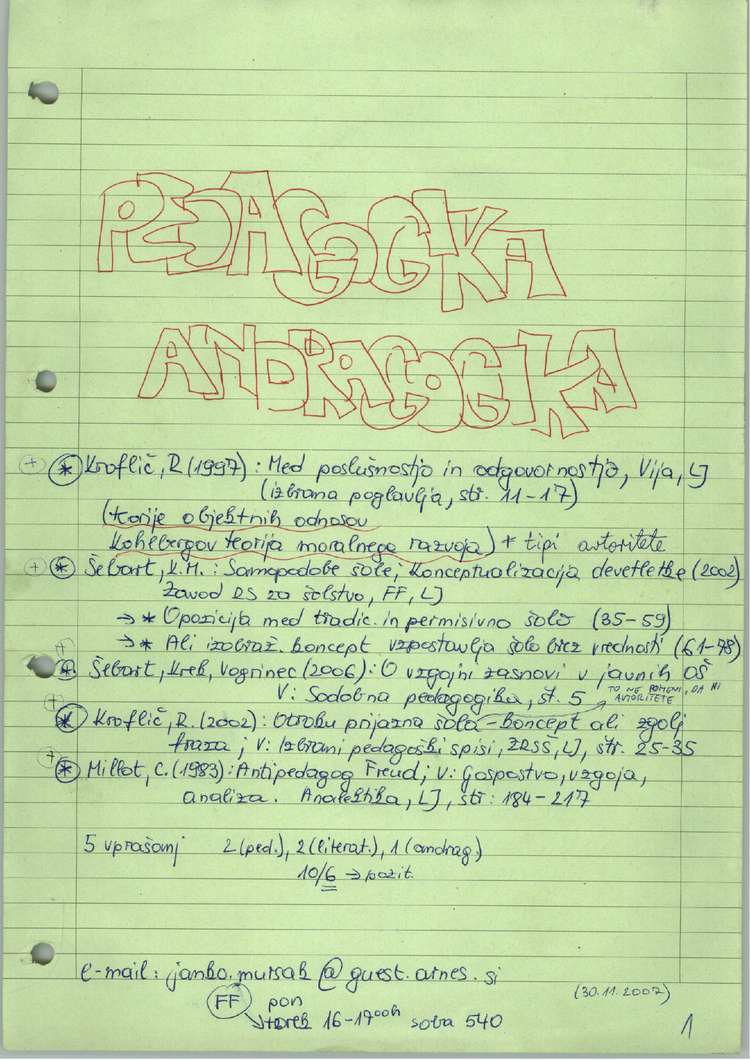 PEDAGOGIKA
ANDRAGOGIKA
+ * Kroflič, R. (1997): Med poslušnostjo in odgovornostjo, Vija, LJ
(izbrana poglavja, str. 11-17)
(teorije objektnih odnosov
Kohlbergov teorija moralnega razvoja) + tipi avtoritete
+ * Šebart, K.M.: Samopodobe šole; Konceptualizacija devetletke (2002)
Zavod RS za šolstvo, FF, LJ
→ * Opozicija med tradic. in permisivno šolo (35-59)
+ → * Ali izobraž. koncept vzpostavlja šolo brez vrednosti (61-78)
* Šebart, Krek, Vogrinec (2006): O vzgojni zasnovi v javnih OŠ
V: Sodobna pedagogika, št. 5 TO NE POMENI, DA NI
AVTORITETE
+ * Kroflič, R. (2002): Otroku prijazna šola - koncept ali zgolj
fraza; V: Izbrani pedagoški spisi, ZRSŠ, LJ, str. 25-35
+ * Millot, C. (1983): Antipedagog Freud; V: Gospostvo, vzgoja,
analiza. Analektika, LJ, str: 184-217
5 vprašanj 2 (ped.), 2 (literat.), 1 (andrag.)
10/6 → pozit.
e-mail: janko.mursak @ guest.arnes.si
(30.11.2007)
FF pon
torek 16-17ooh soba 540
1